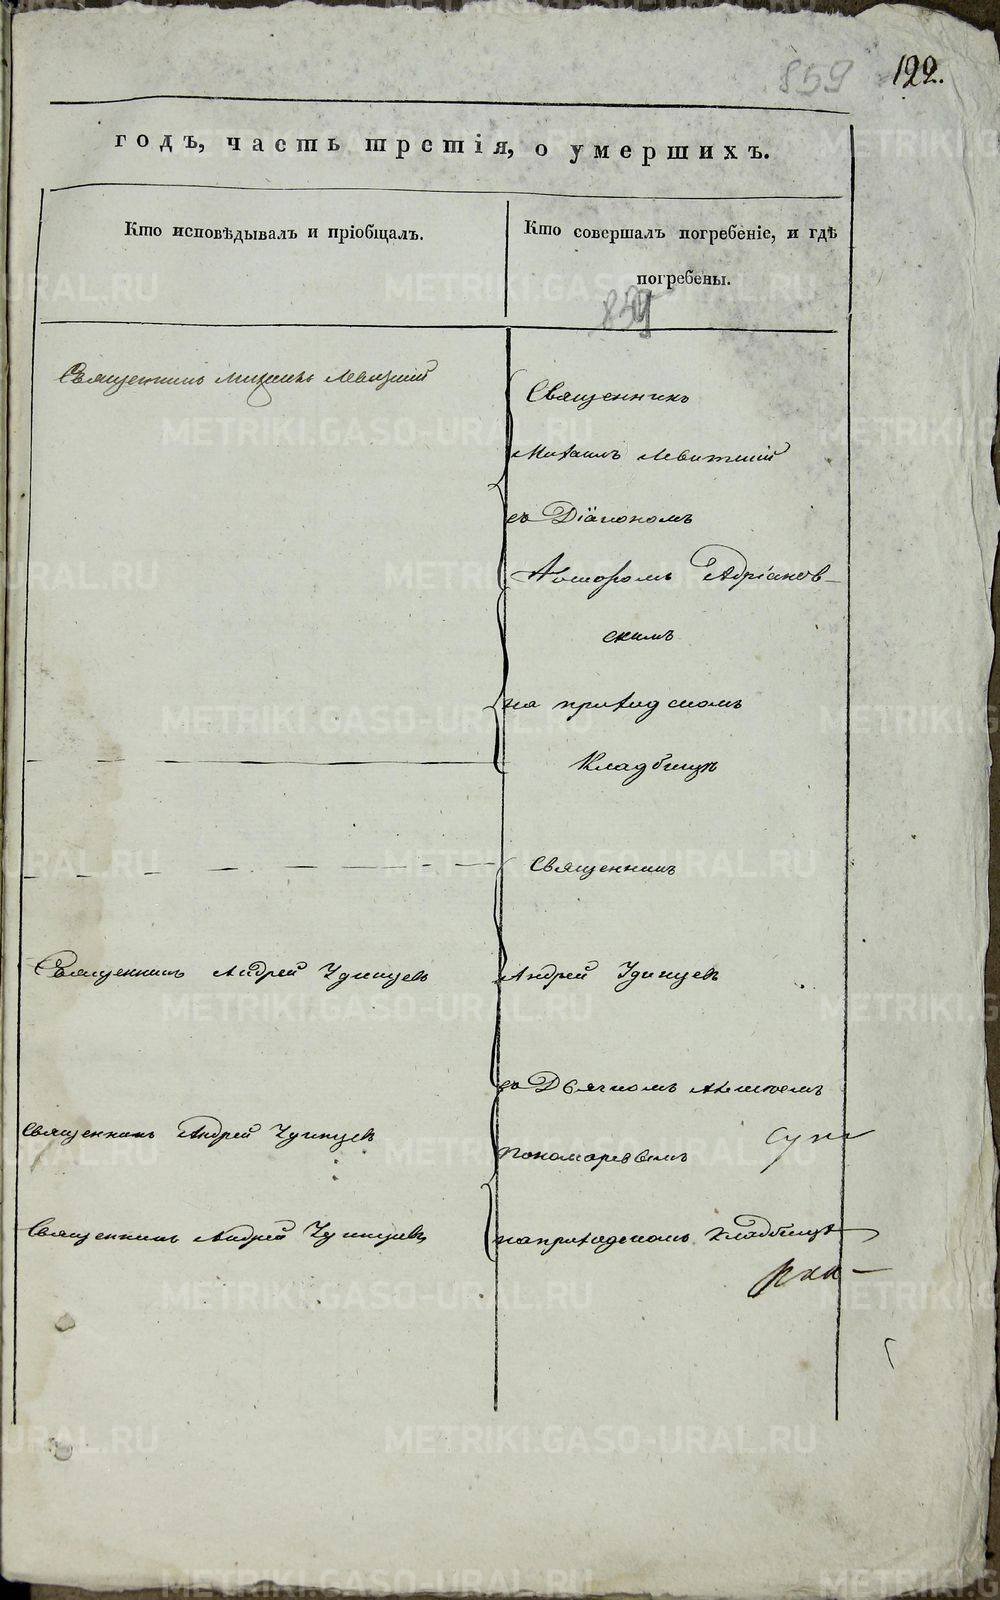 859 122.
годъ, часть третія, о умершихъ.
Кто исповѣдывалъ и пріобщалъ.
Кто совершалъ погребеніе, и гдѣ
погребены.
859
Священникъ Михаилъ Левитскій
Священникъ
Михаилъ Левитскій
съ Діакономъ
Адріанов-
скимъ
на приходскомъ
кладбищѣ
Священникъ
Священникъ Андрей Удинцевъ
Андрей Удинцевъ
съ Дьячкомъ
Пономаревымъ
Священникъ Андрей Удинцевъ
Священникъ Андрей Удинцевъ
на приходскомъ кладбищѣ
METRIKI.GASO-URAL.RU